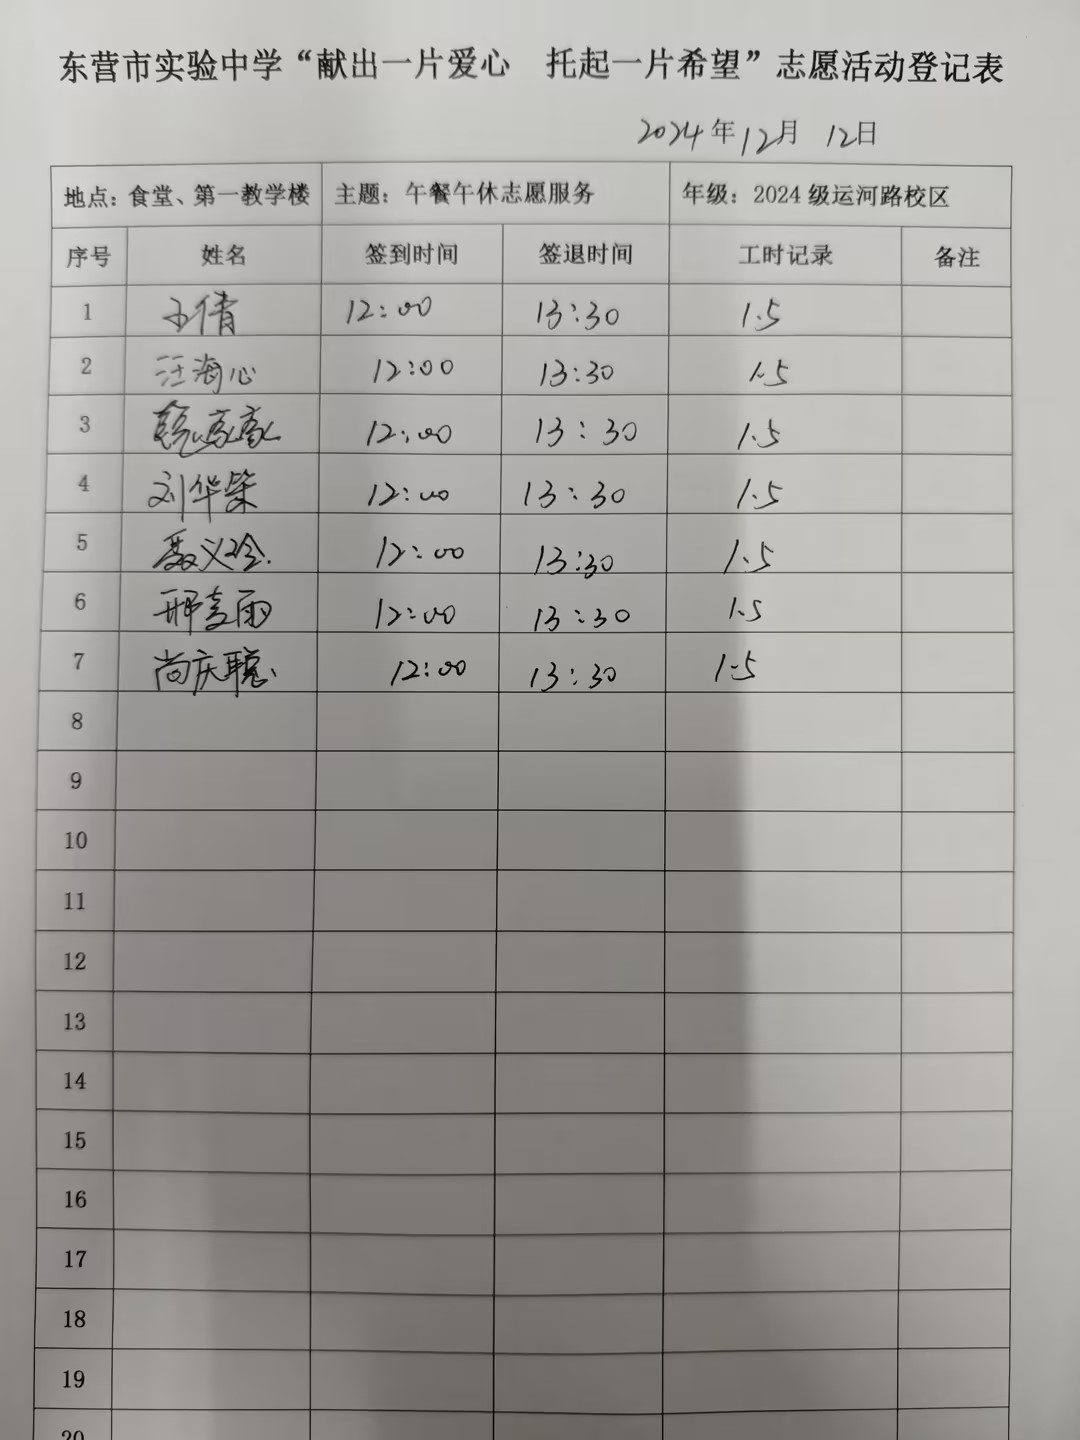 东营市实验中学“献出一片爱心 托起一片希望”志愿活动登记表
2024年12月 12日
地点：食堂、第一教学楼 主题：午餐午休志愿服务 年级：2024级运河路校区
序号 姓名 签到时间 签退时间 工时记录 备注
1 王倩 12:00 13:30 1.5
2 汪海心 12:00 13:30 1.5
3 12:00 13:30 1.5
4 刘华荣 12:00 13:30 1.5
5 聂义玲 12:00 13:30 1.5
6 邢雨 12:00 13:30 1.5
7 尚庆聪 12:00 13:30 1.5
8
9
10
11
12
13
14
15
16
17
18
19
20